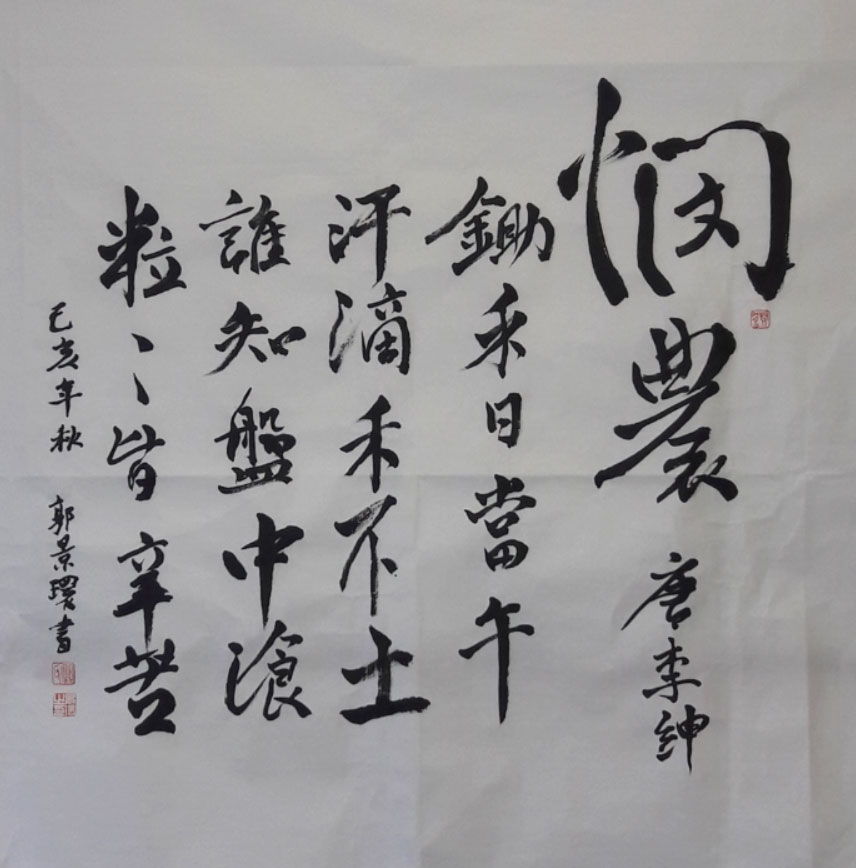 憫農 唐李紳
鋤禾日當午
汗滴禾下土
誰知盤中湌
粒〻皆辛苦
己亥年秋 郭景環書